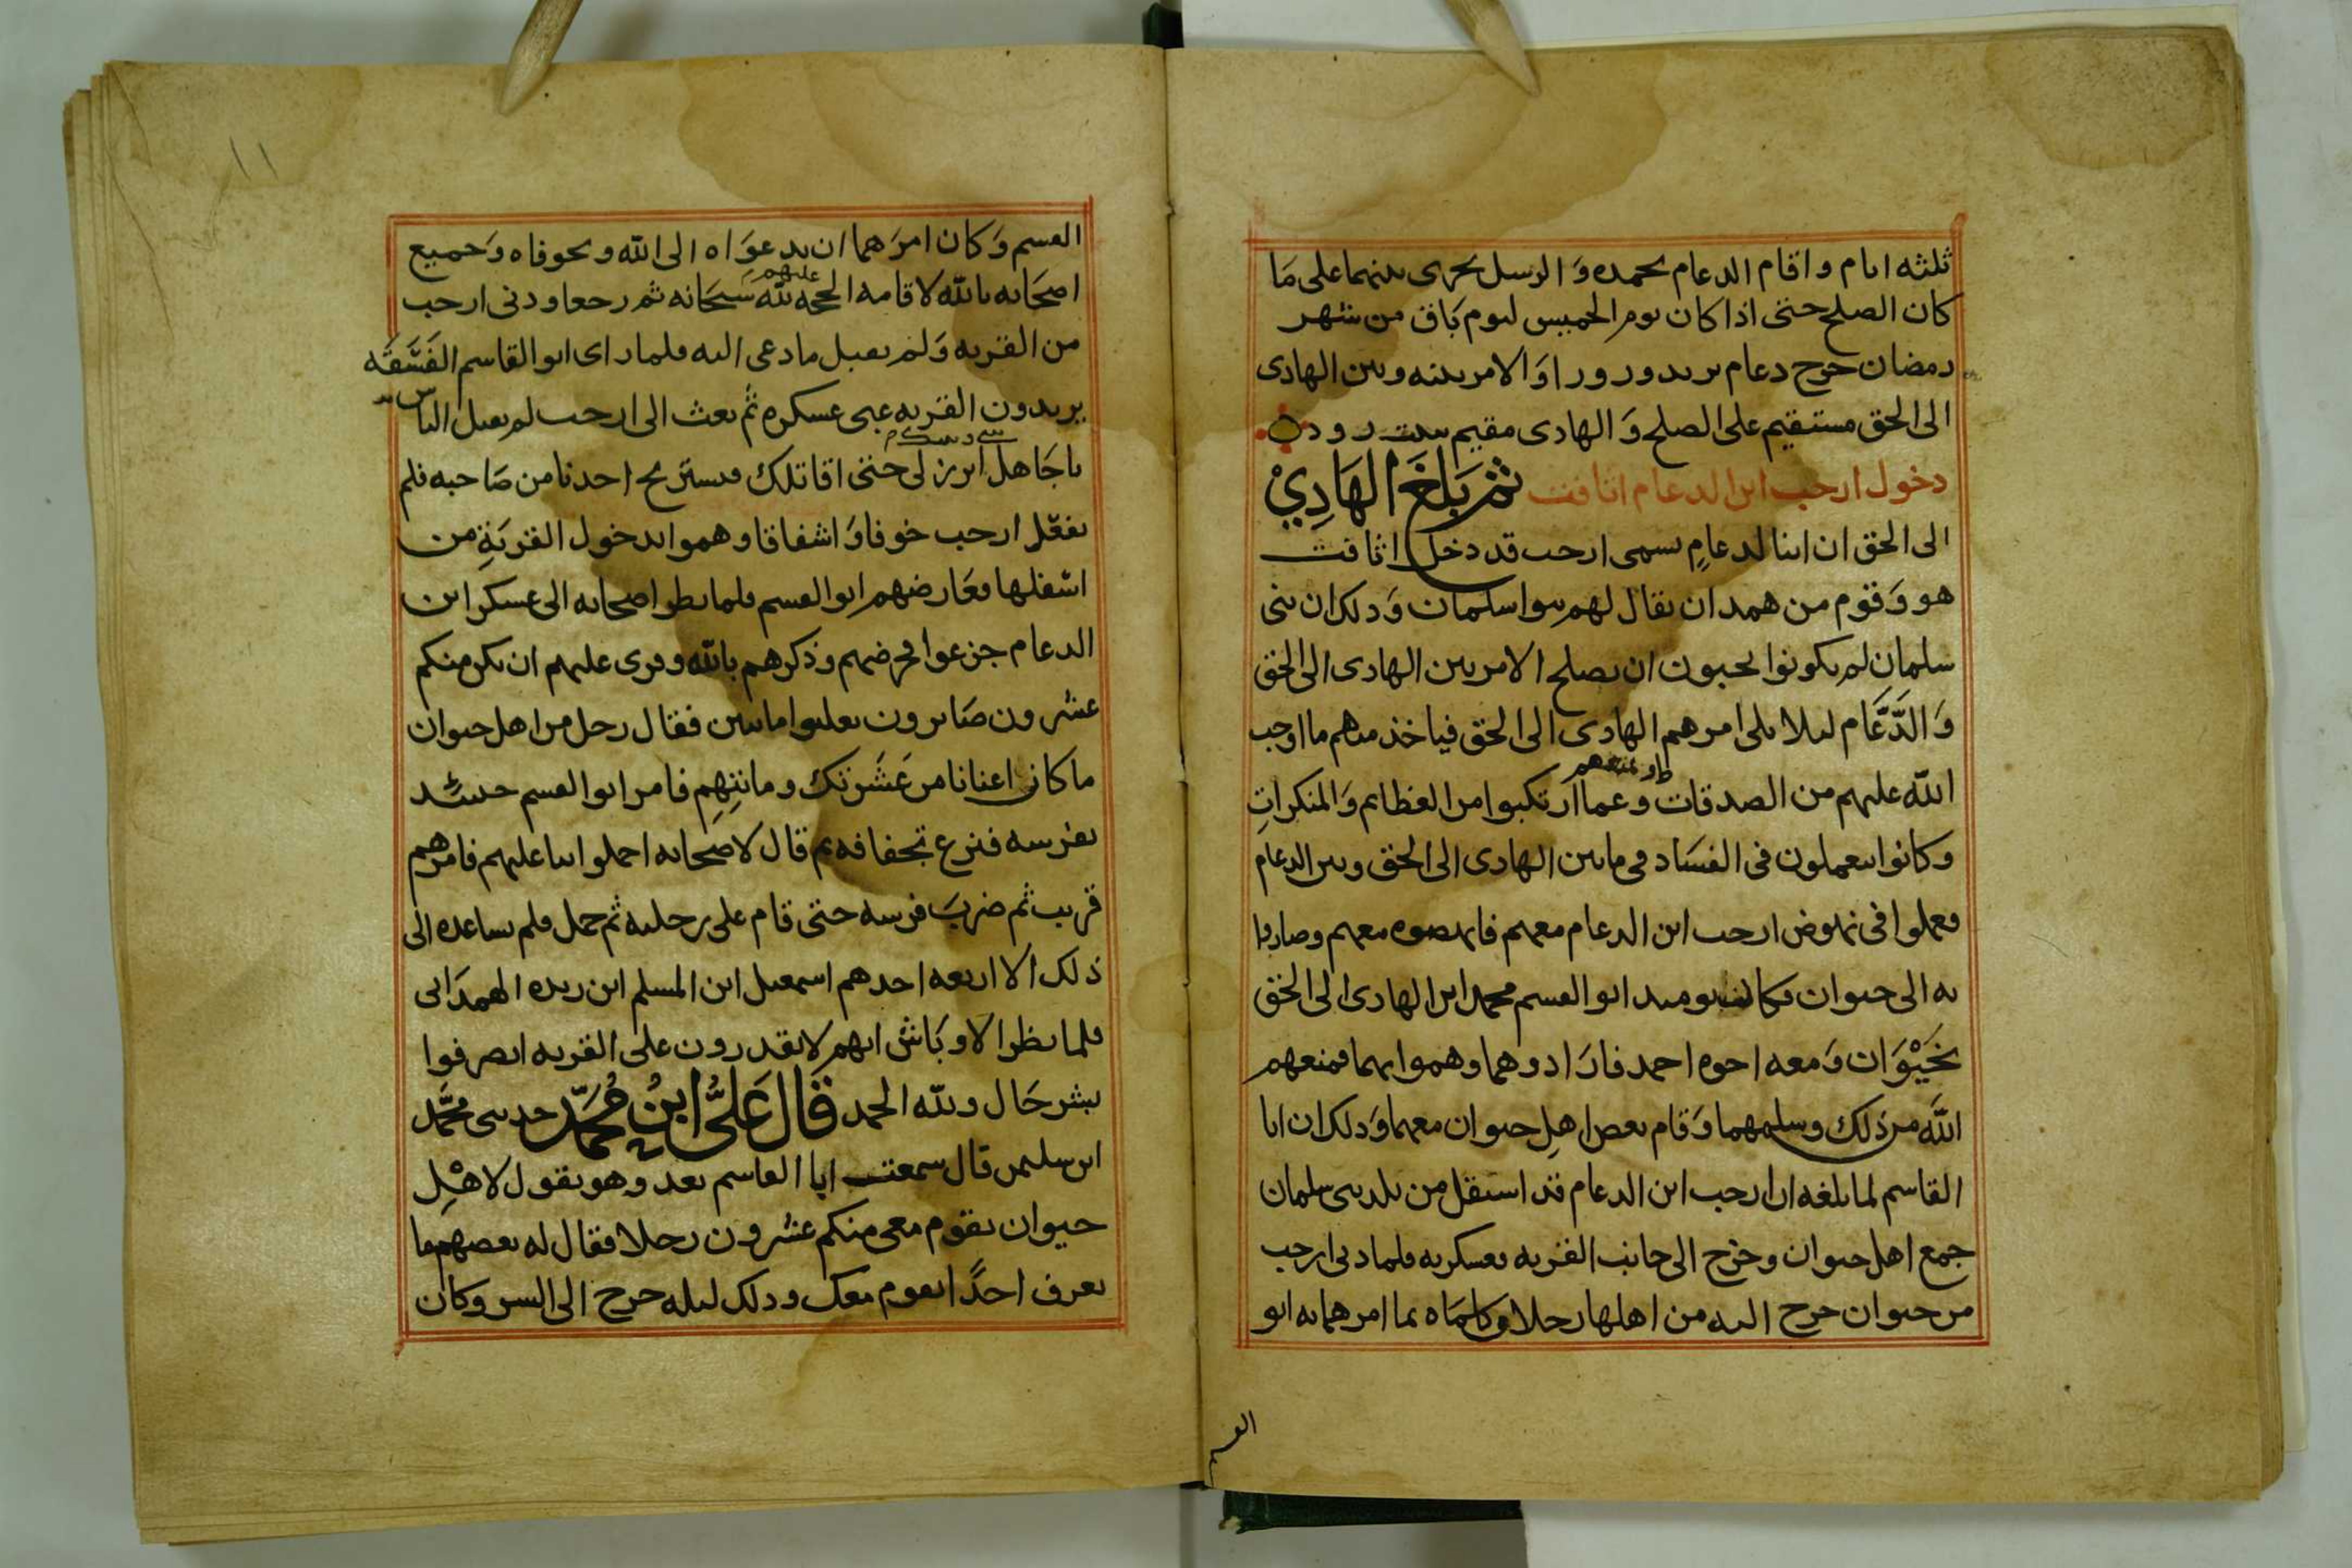 ثلثه ايام واقام الدعام بحمده وَ الرسل تجرى بينهما على مَا
كان الصلح حتى اذا كان يوم الخميس ليوم بَاق من شهر
رمضان خرج دعام يريد ورور اوَ الامر بينه وبين الهادى
الى الحق مستقيم على الصلح وَ الهادى مقيم ببيت زود
دخول ارحب ابن الدعام اثافت ثم بَلَغَ الهَادِيْ
الى الحق ان ابنا لدعامٍ يسمى ارحب قد دخل اثافت
هو وَقوم من همدان يقال لهم بنوا سلمان وَ ذلك ان بنى
سلمان لم يكونوا يحبون ان يصلح الامر بين الهادى الى الحق
وَ الدَّعَّام ليلا يلى امرهم الهادى الى الحق فياخذ منهم ما اوجب
الله عليهم من الصدقات ويمنعهم عما ارتكبوا من العظايم وَالمنكراتِ
وكانوا يعملون فى الفسَاد فى ما بين الهادى الى الحق وبين الدعام
فعملوا فى نهوض ارحب ابن الدعام معهم فانهضوه معهم وصاروا
به الى خيوان فكان يوميد ابو القسم محمد ابن الهادى الى الحق
بخَيْوَان وَ معه اخوه احمد فارَادوهما وهموا بهما فمنعهم
اللّه من ذلك وسلمهما وَقام بعض اهلِ خيوان معهما وَ ذلك ان ابا
القاسم لما بلغه ان ارحب ابن الدعام قد استقل من بلد بنى سلمان
جمع اهل خيوان وخرج الى جانب القريه بعسكره فلما دنى ارحب
من خيوان خرج اليه من اهلها رجلان وكلمَاه بما امرهما به ابو
القسم
١١
القسم وَكان امرَهما ان يدعوَاه الى الله ويخوفاه وَجميع
اصحَابه بالله لاقامه الحجه لله عليهم سبحَانه ثم رجعا ودنى ارحب
من القريه وَلم يقبل ما دعى اليه فلما راى ابو القاسم الفَسَقَه
يريدون القريه عبى عسكره ثم بعث الى ارحب لم يقتل الناس
يا جَاهل ابرز لى حتى اقاتلك فيستريح احدنا من صَاحبه فلم
يفعل ارحب خوفا وَاشفاقا وهموا بدخول القريَةِ من
اسفلها فعَارضهم ابو القسم فلما نظر اصحابه الى عسكر ابن
الدعام جزعوا فحرضهم وذكرهم بالله وقرى عليهم ان يكن منكم
عشرون صَابرون يغلبوا مايتين فقال رجل من اهل خيوان
ما كان اغنانا من عَشرتك ومايتِهِم فامر ابو القسم حينيد
بفرسه فنزع تجفافه ثم قال لاصحابه احملوا بنا عليهم فامرهم
قريب ثم ضربَ فرسه حتى قام على رجليه ثم حمل فلم يساعده الى
ذلك الا اربعه احدهم اسمعيل ابن المسلم ابن ريده الهمدَانى
فلما نظر الاوبَاش انهم لا يقدرون على القريه انصرفوا
بشر حَال ولله الحمد قَال عَلىُّ ابنُ مُحَمَّدٍ حدثنى محمَّد
ابن سليمن قال سمعت ابا القاسم بعد وهو يقول لاهْلِ
خيوان يقوم معى منكم عشرون رجلا فقال له بعضهم ما
نعرف احدًا يقوم معك وذلك ليله خرج الى السر وكان